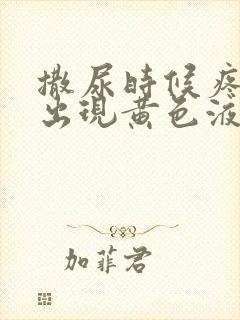 撒尿時候疼
出現黃色液
加菲君